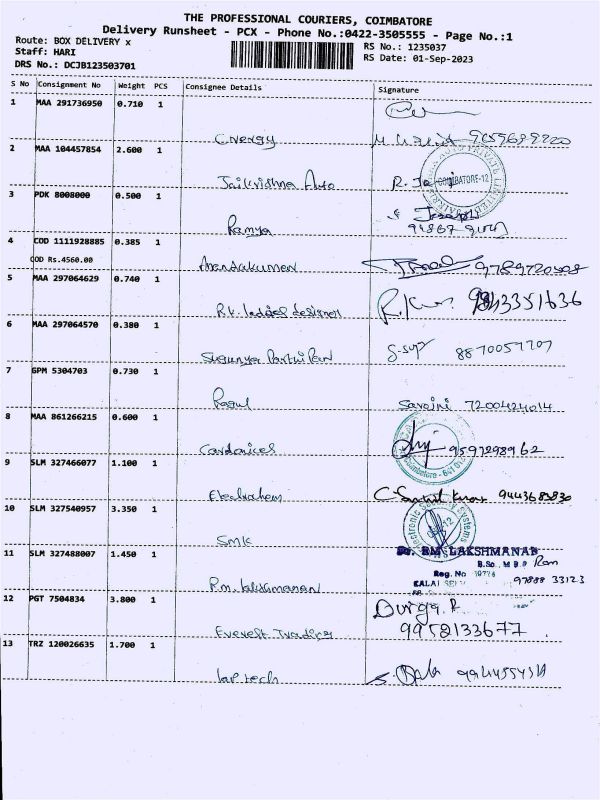 THE PROFESSIONAL COURIERS, COIMBATORE
Delivery Runsheet - PCX - Phone No.:0422-3505555 - Page No.:1
Route: BOX DELIVERY x
RS No.: 1235037
Staff: HARI
RS Date: 01-Sep-2023
DRS No.: DCJB123503701
S No Consignment No Weight PCS Consignee Details Signature
1 MAA 291736950 0.710 1
Cnergy
2 MAA 104457854 2.600 1
Jaikrishna Auto
COIMBATORE-12
3 PDK 8008000 0.500 1
Ramya Joseph
4 COD 1111928885 0.385 1
COD Rs.4560.00 Anandakumar
5 MAA 297064629 0.740 1
R.k. ladies designer R.Kum. 9843351636
6 MAA 297064570 0.380 1
Sugunya Parthipan 8870057707
7 GPM 5304703 0.730 1
Sarojni 7200424014
8 MAA 861266215 0.600 1
9597298962
9 SLM 327466077 1.100 1
9443683830
10 SLM 327540957 3.350 1
SMK
Electronic Security Systems
11 SLM 327488007 1.450 1
Dr. RM. LAKSHMANAN
B.Sc., M.B.B Ram
Reg. No
KALAI
97888 33123
P.m. lakshmanan
12 PGT 7504834 3.800 1
Durga R
Everest Trading 9958133677
13 TRZ 120026635 1.700 1
lap tech S. Bala